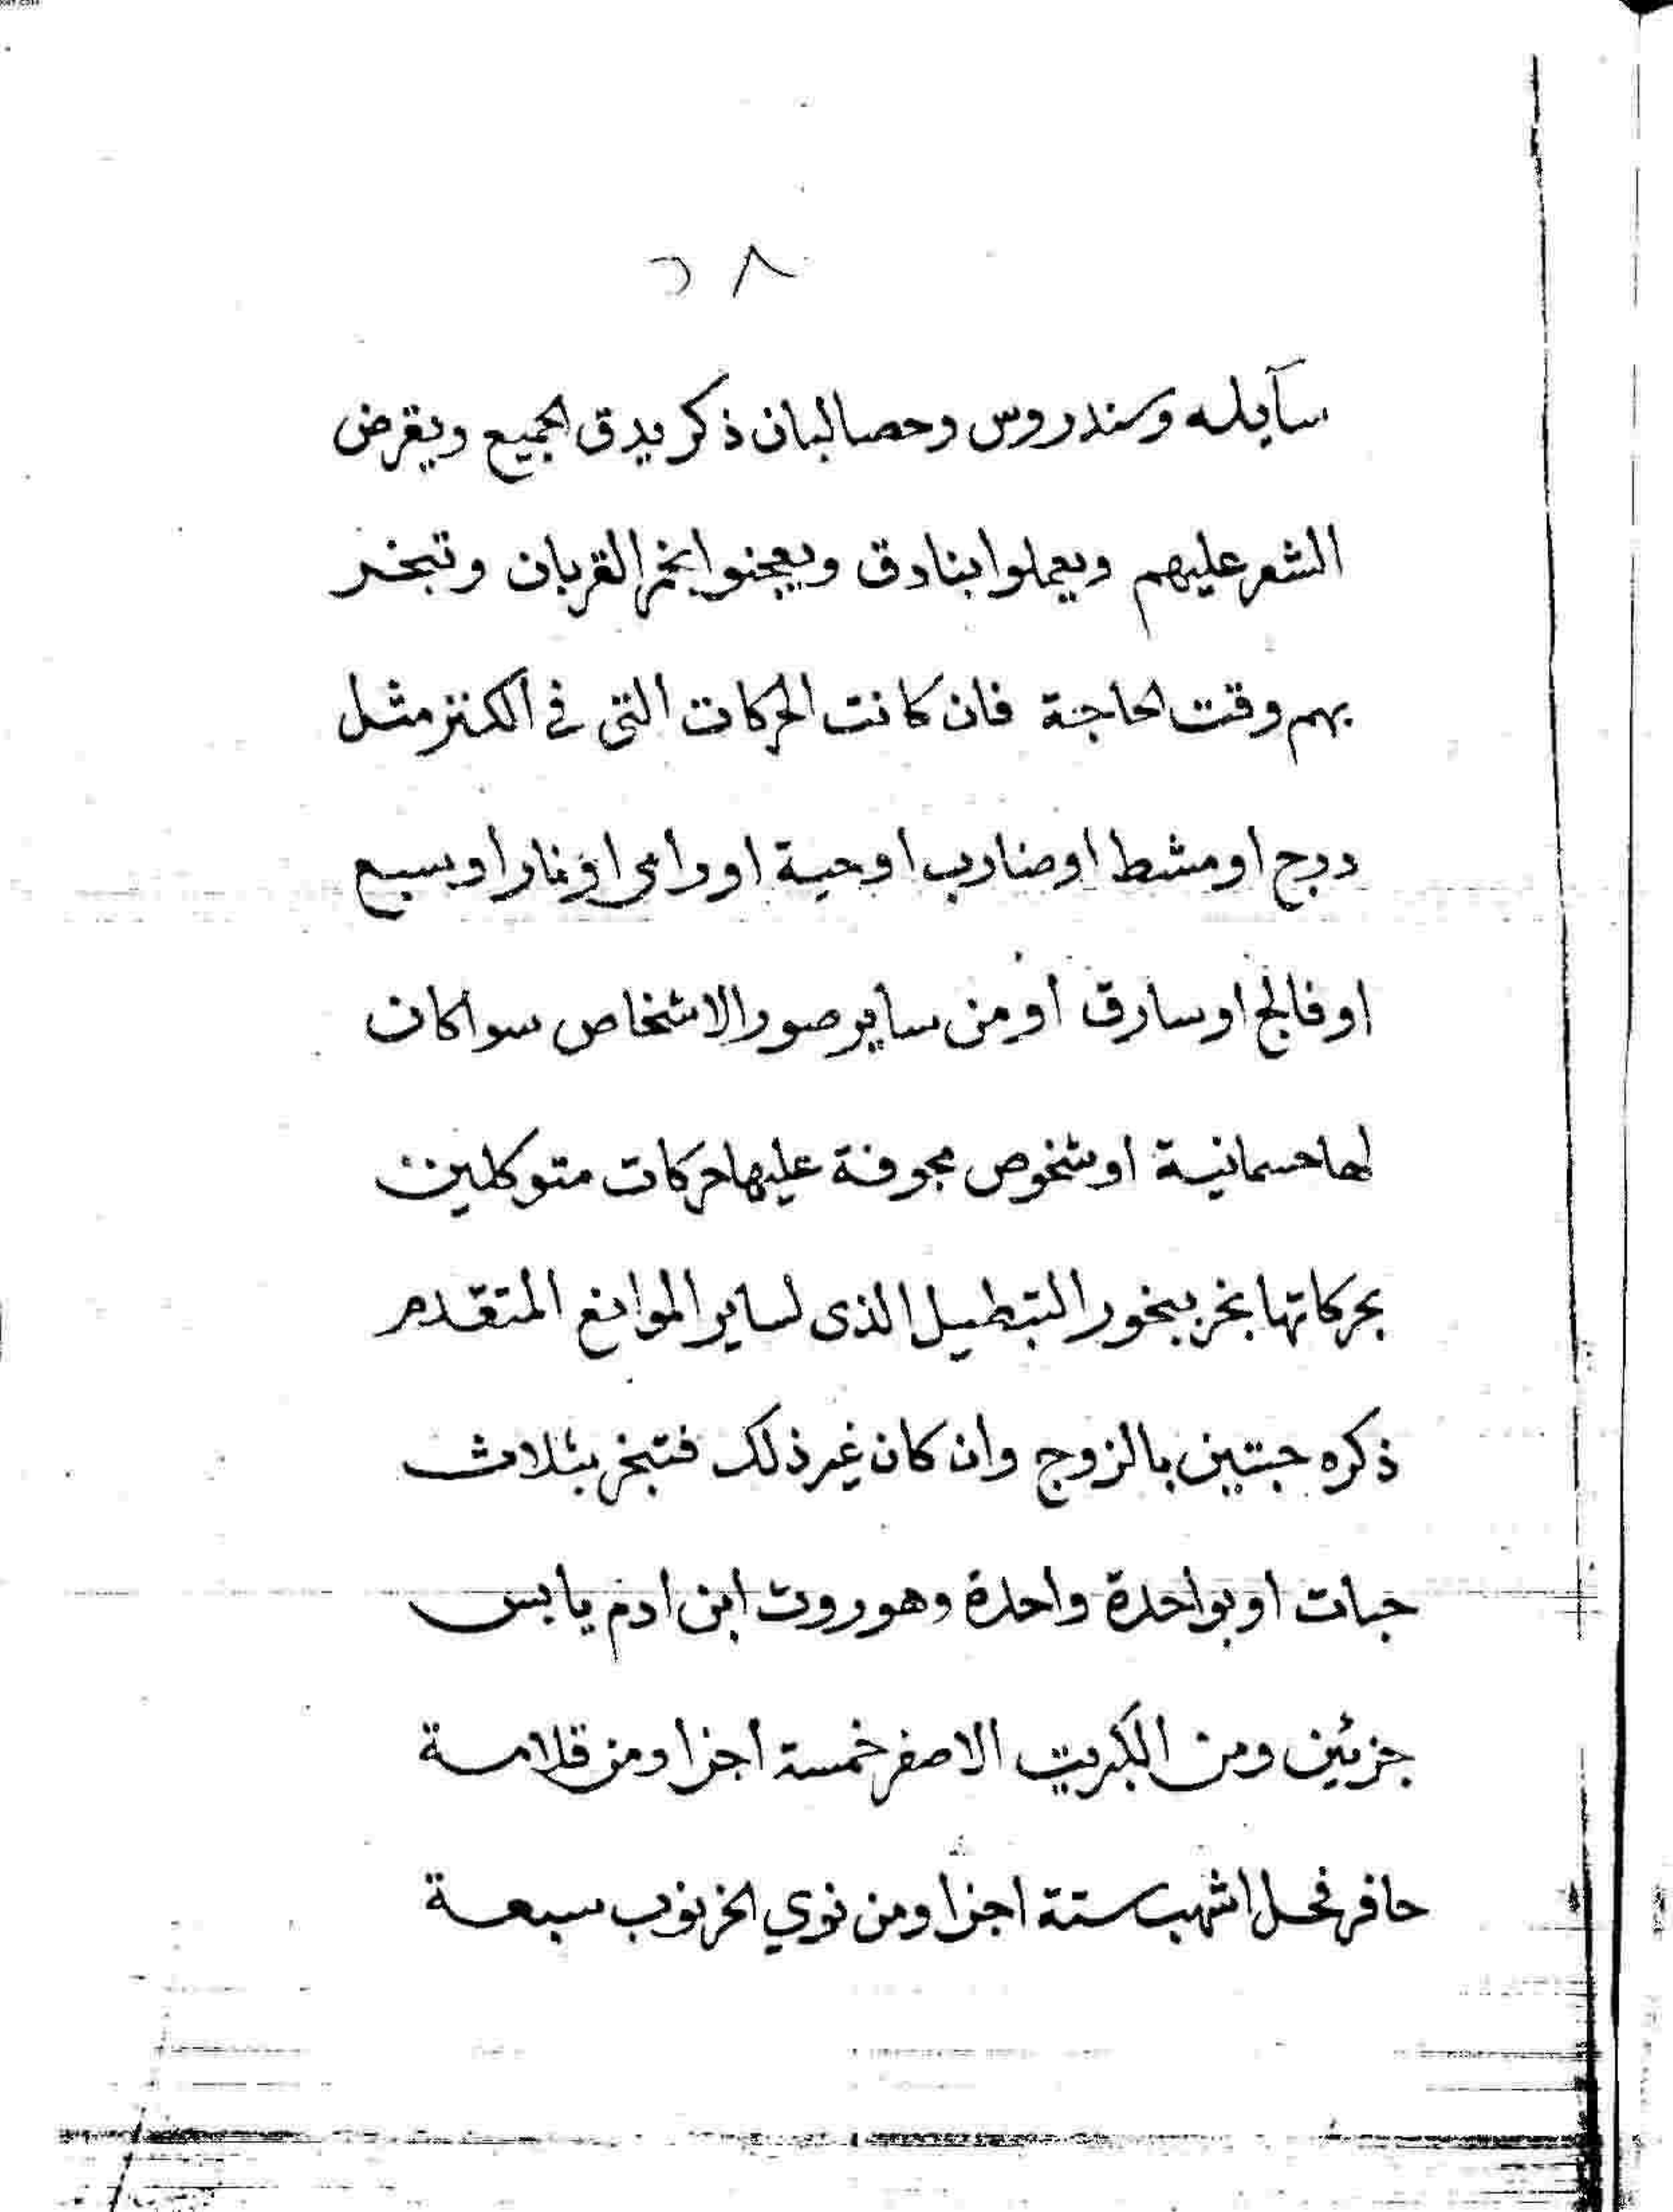 ٢٨
سآيله وسندروس وحصالبان ذكر يدق الجميع ويقرض
الشعر عليهم ويعملوا بنادق ويعجنوا بخمر القربان وتبخر
بهم وقت الحاجة فان كانت الحركات التى فى الكنز مثل
درج او مشط او ضارب او حية او رامى او نار او سبع
او فالج او سارق أو من ساير صور الاشخاص سوا كان
لها حسمانية او شخوص مجوفة عليها حركات متوكلين
بحركاتها بخر ببخور التبطيل الذى لساير الموانع المتقدم
ذكره حبتين بالزوج وان كان غير ذلك فتبخر بثلاث
حبات او بواحدة واحدة وهو روث ابن ادم يابس
جزئين ومن الكبريت الاصفر خمسة اجزا ومن قلامة
حافر فحل اشهب ستة اجزا ومن نوي الخرنوب سبعة